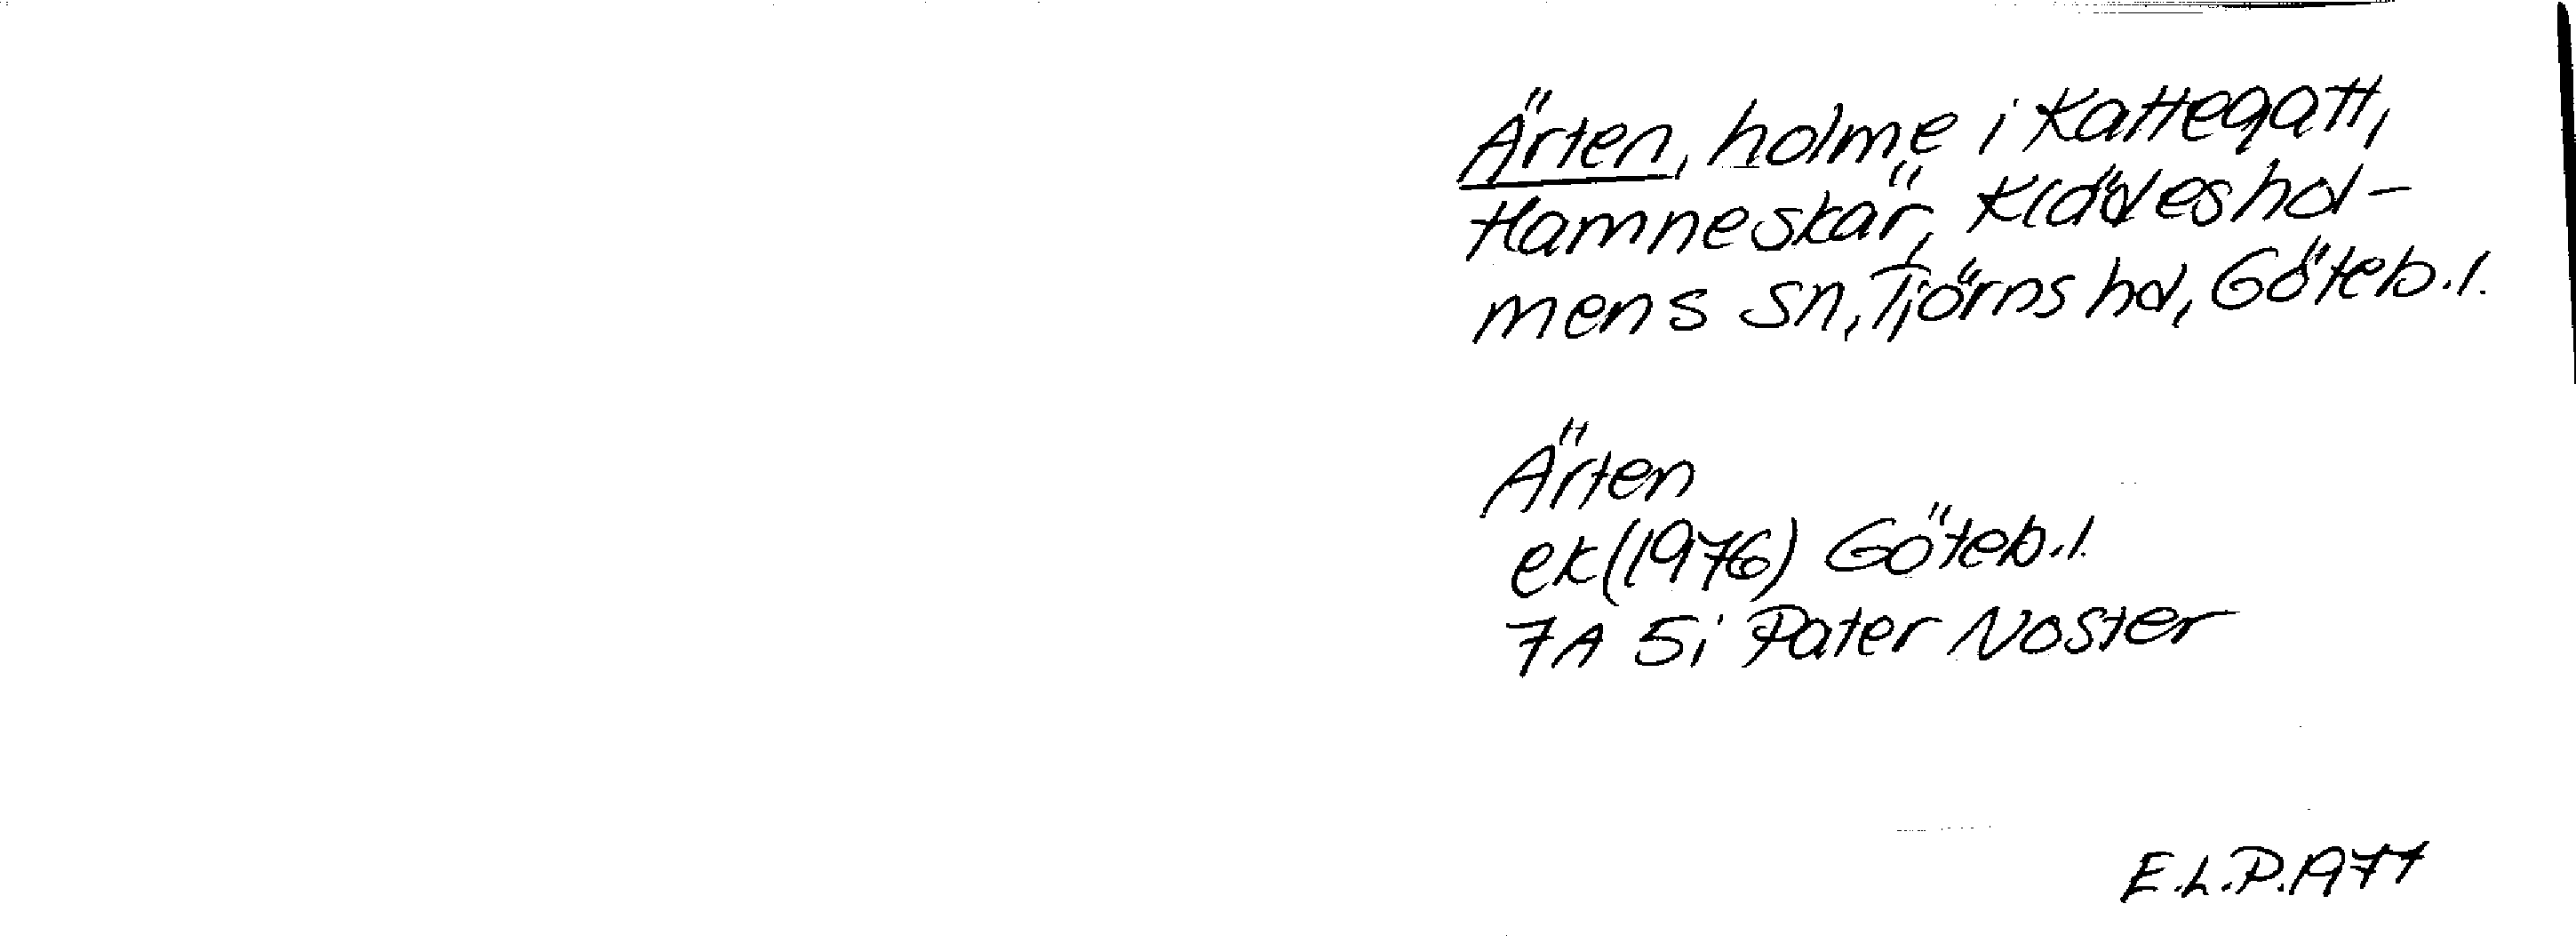 Ärten, holme i Kattegatt,
Hamneskär, Klädeshol-
mens sn, Tjörns hd, Göteb.l.
Ärten
ek (1976) Göteb.l.
7A 5i Pater Noster
E.L.P. 1977